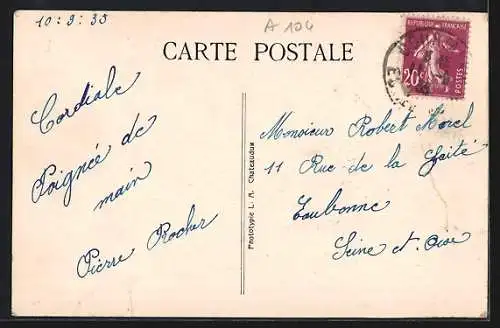 10:9:35
A 104
CARTE POSTALE
REPUBLIQUE FRANÇAISE
20c
POSTES
Cordiale
Poignée de
main
Pierre Rocher
Phototypie L. A. Chateaudun
Monsieur Robert Morel
11 Rue de la Gaité
Eaubonne
Seine et Oise